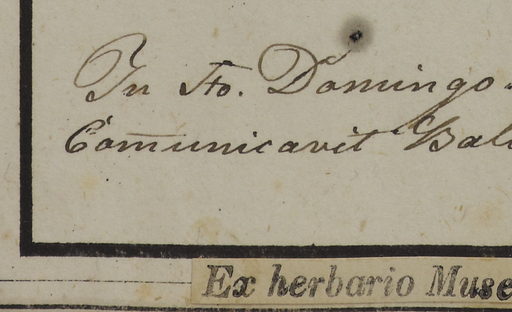 In Sto. Domingo.
Com̅unicavit Bal
Ex herbario Muse